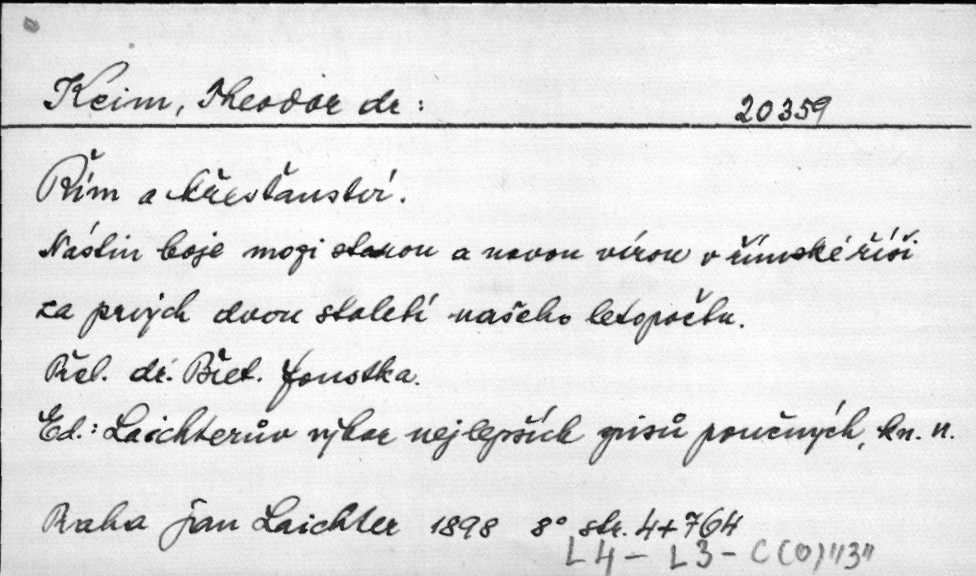 Keim, Theodor dr: 20359
Řím a křesťanství.
Nástin boje mezi starou a novou vírou v římské říši
za prvých dvou století našeho letopočtu.
Přel. dr. Břet. Foustka.
Ed.: Laichterův výbor nejlepších spisů poučných, kn. II.
Praha Jan Laichter 1898 8° str. 4+764
L4 - L3 - C (0) "13"